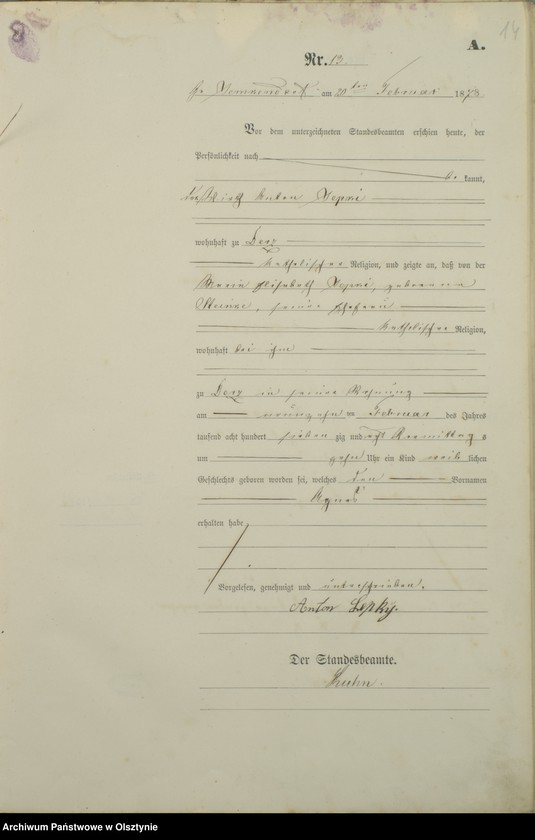 14
A.
Nr. 12.
am 20 ten Februar 1878
Vor dem unterzeichneten Standesbeamten erschien heute, der
Persönlichkeit nach
be kannt,
Anton
wohnhaft zu Derz
katholischer Religion, und zeigte an, daß von der
Maria Elisabeth geborene
seiner Ehefrau
katholischer Religion,
wohnhaft bei ihm
zu Derz in seiner Wohnung
am neunzehn ten Februar des Jahres
tausend acht hundert sieben zig und acht Vormittag s
um zehn Uhr ein Kind weib lichen
Geschlechts geboren worden sei, welches den Vornamen
Agnes
erhalten habe.
Vorgelesen, genehmigt und unterschrieben.
Anton Lepky.
Der Standesbeamte.
Archiwum Państwowe w Olsztynie